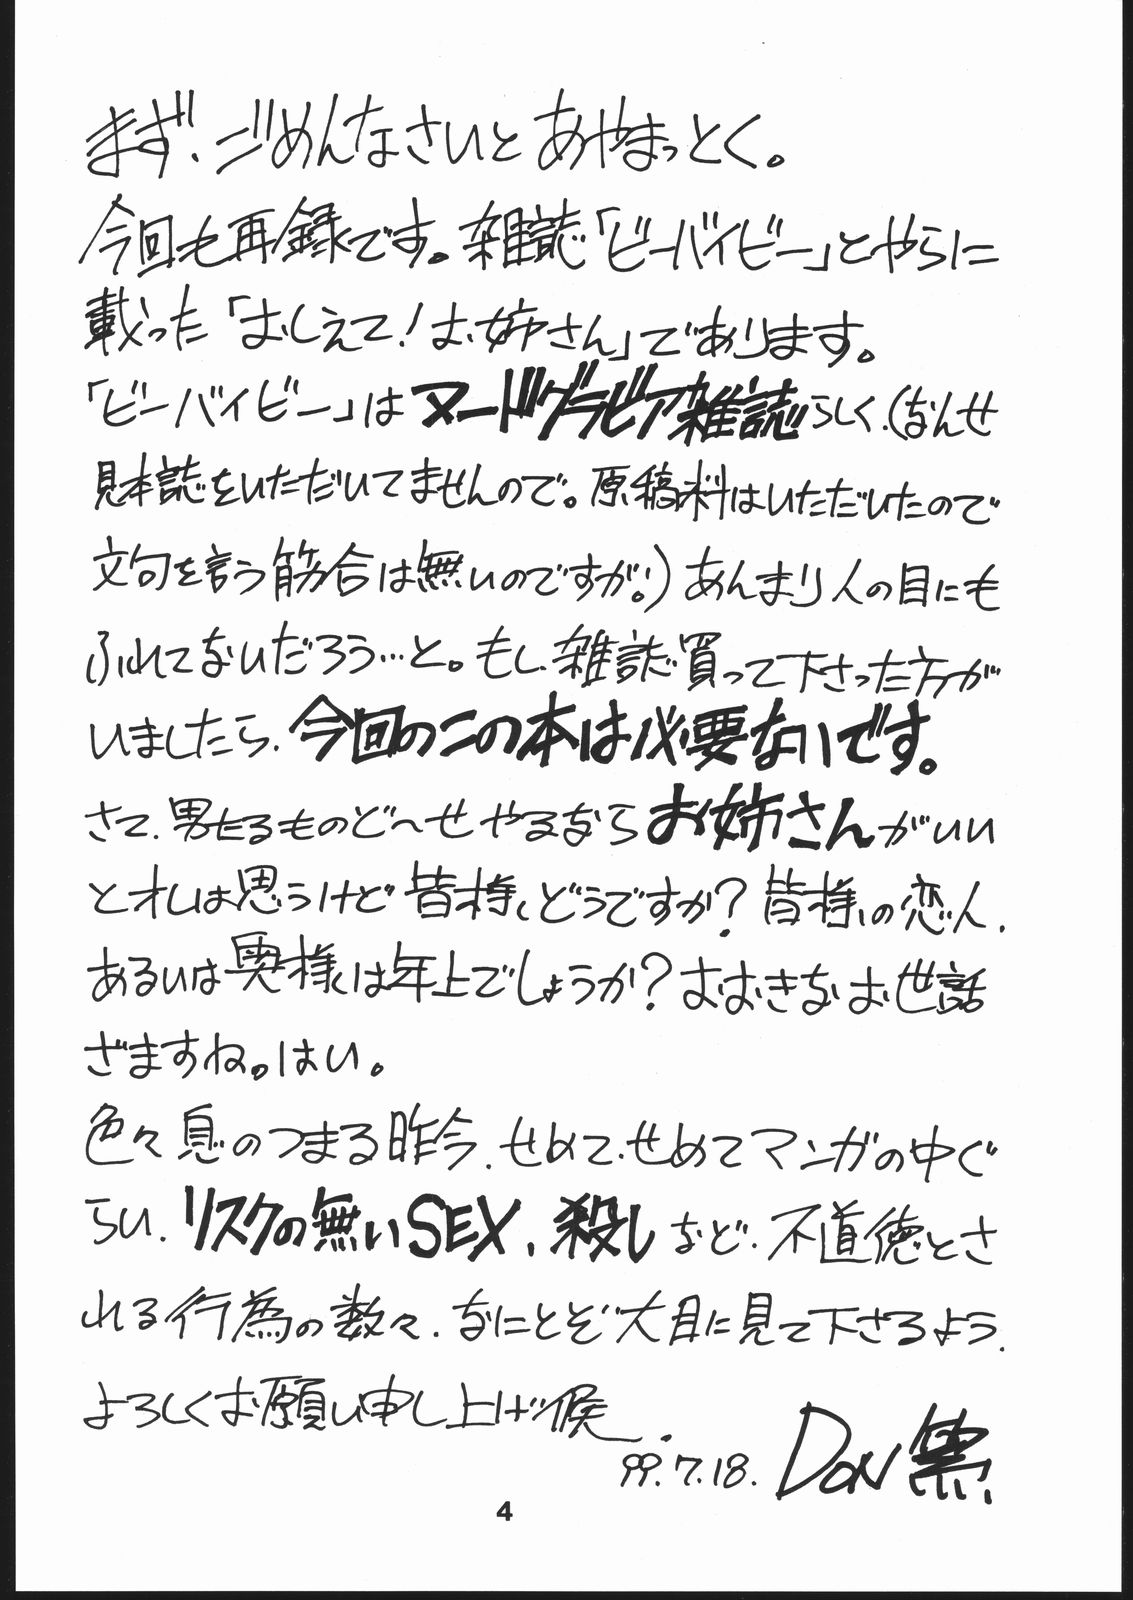 まず、ごめんなさいとあやまっとく。
今回も再録です。雑誌「ビーバイビー」とやらに
載った「おしえて！お姉さん」であります。
「ビーバイビー」はヌードグラビア雑誌らしく、(なんせ
見本誌をいただいてませんので。原稿料はいただいたので
文句を言う筋合は無いのですが。)あんまり人の目にも
ふれてないだろう…と。もし、雑誌買って下さった方が
いましたら、今回のこの本は必要ないです。
さて、男たるものど〜せやるならお姉さんがいい
とオレは思うけど皆様、どうですか？皆様の恋人、
あるいは奥様は年上でしょうか？おおきなお世話
ざますね。はい。
色々息のつまる昨今、せめて、せめてマンガの中ぐ
らい、リスクの無いSEX、殺しなど、不道徳とさ
れる行為の数々、なにとぞ大目に見て下さるよう、
よろしくお願い申し上げ候。
99.7.18. DON黒
4